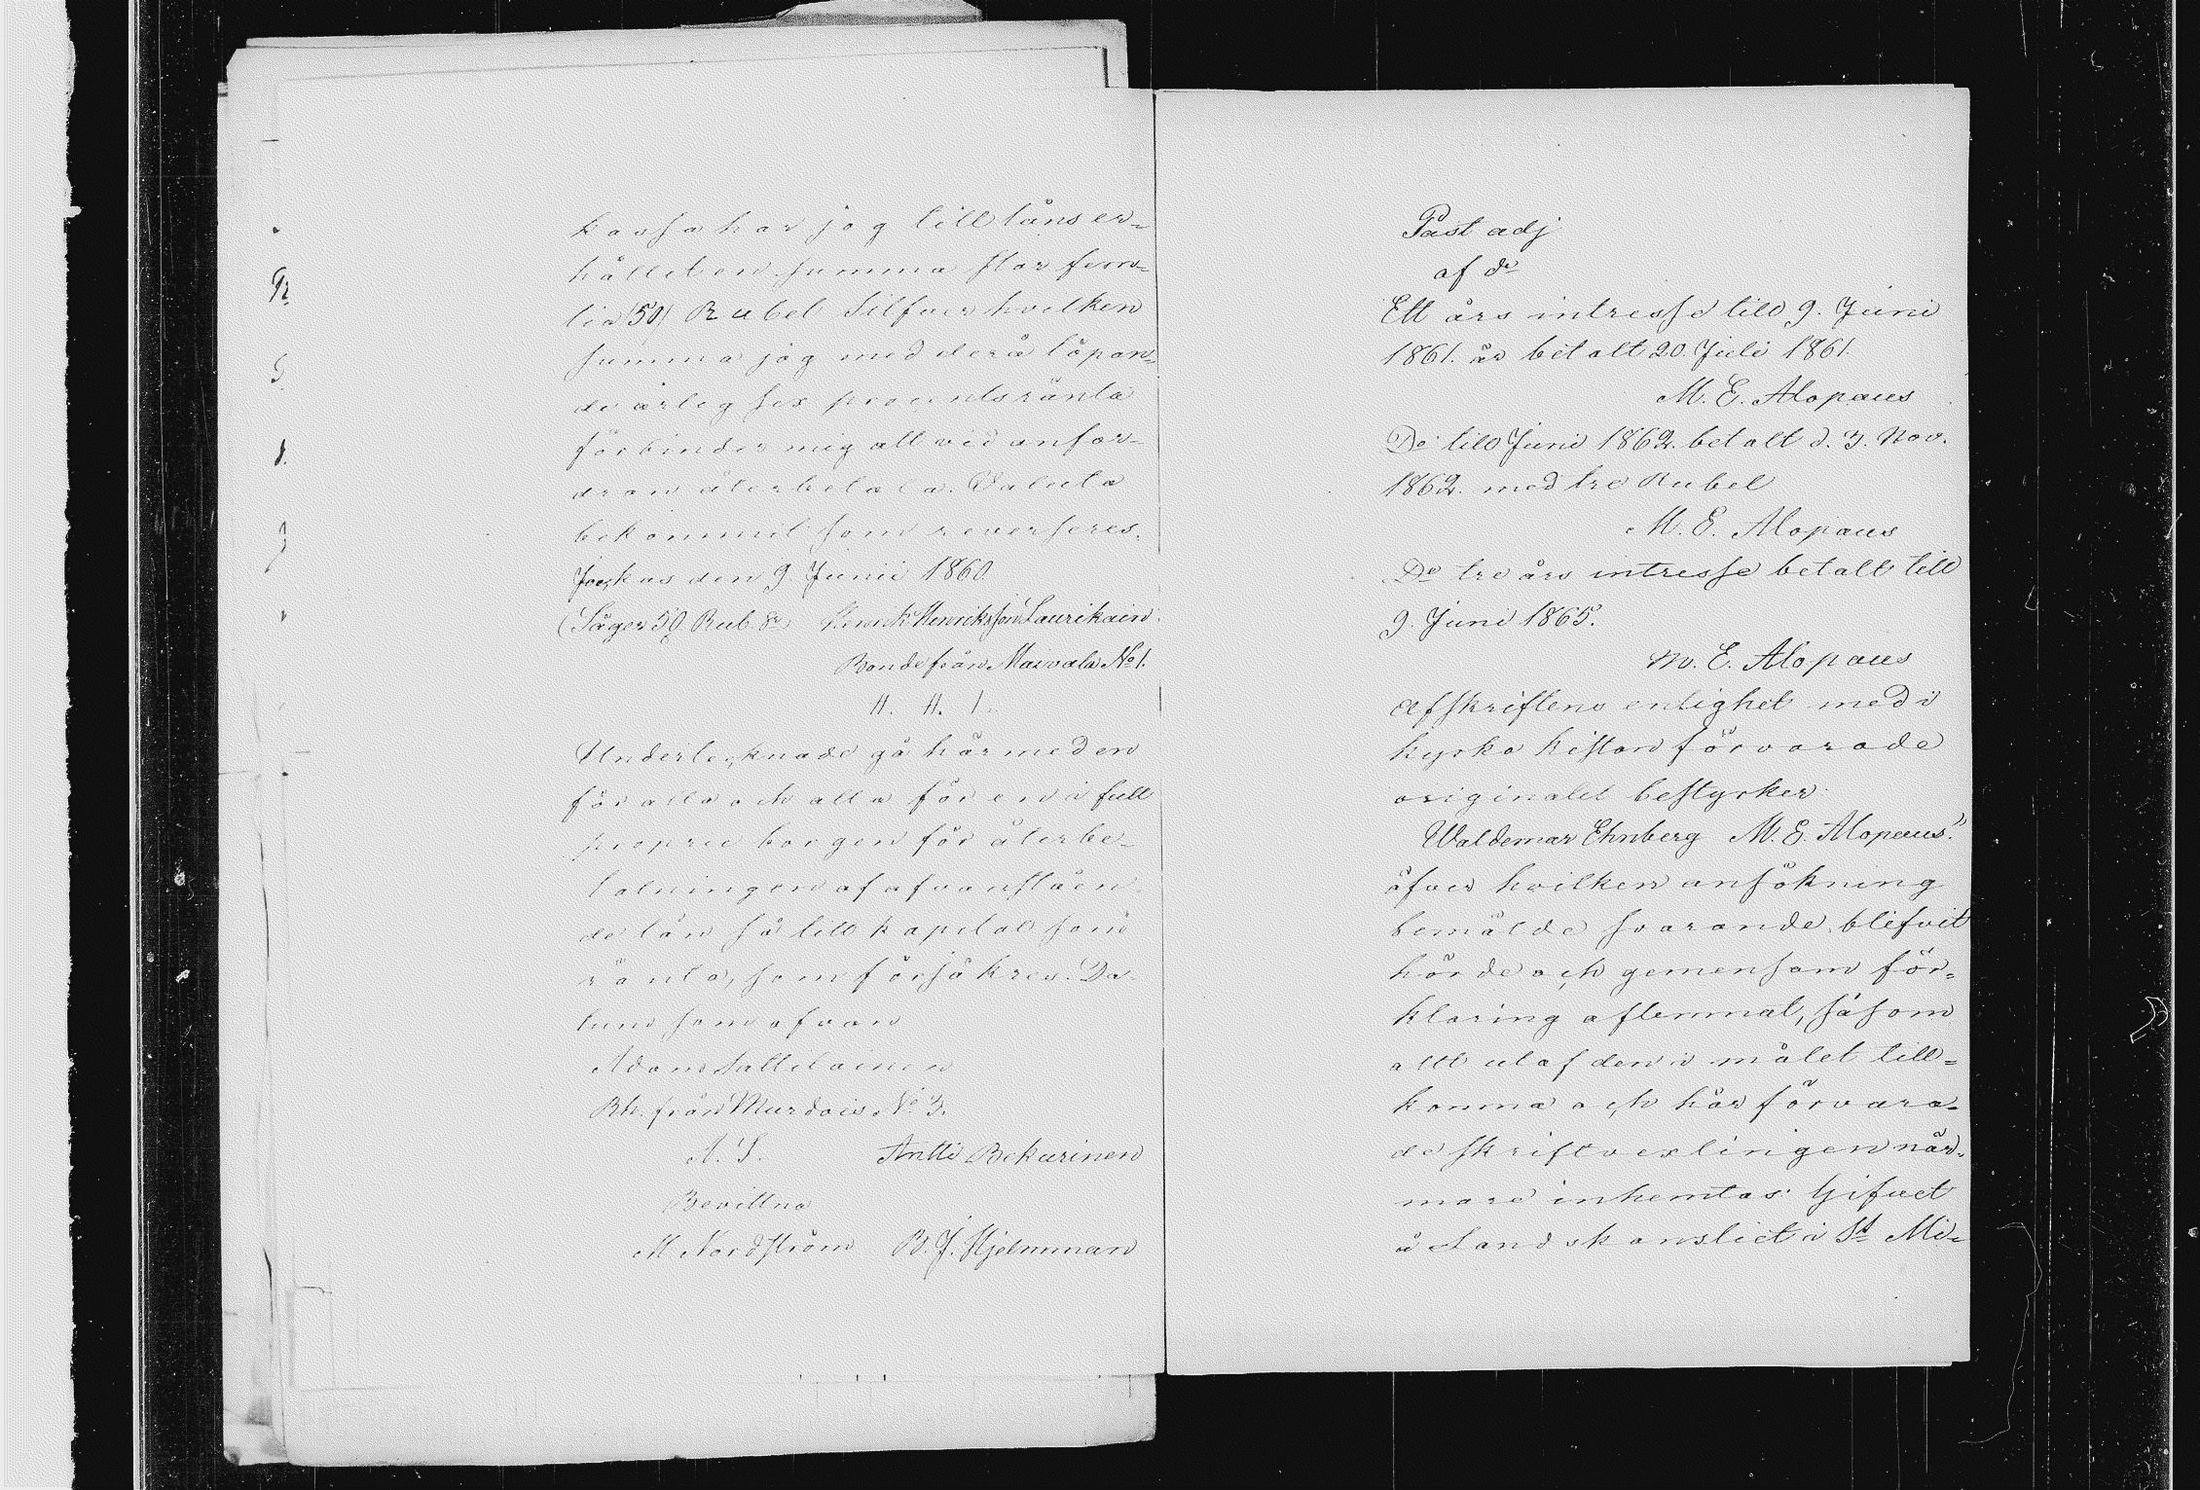 kassa har jag till låns er-
hållit en summa stor fem-
tio (50) Rubel Silfver hvilken
summa jag med derå löpan-
de årlig sex procents ränta
förbinder mig att vid anfor-
dran återbetala. Valuta
bekommit som reverseres.
Jockas den 9 Junii 1860.
(Säger 50 Rub. Sr) Henrik Henriksson Laurikain
Bonde från Maivala No 1.
H. H. L.
Undertecknade gå härmed en
för alla och alla för en i full
proprie borgen för återbe-
talningen af ofvanståen-
de lån så till kapital som
ränta, som försäkres. Da-
tum som ofvan
Adam Lattilainen
Bh. från Murdois No 3.
A. L. Antti Bekurinen
Bevittna
M Nordström B. J. Hjelmman
Past adj
af do
Ett års intresse till 9. Juni
1861. är betalt 20. Juli 1861.
M. E. Alopaeus
Do till Juni 1862. betalt d. 3. Nov.
1862. med tre Rubel
M. E. Alopaeus
Do tre års intresse betalt till
9. Juni 1865.
M. E. Alopaeus
Afskriftens enlighet med i
kyrko kistan förvarade
originalet bestyrker.
Waldemar Ehnberg M. E. Alopaeus."
öfver hvilken ansökning
bemälde svarande blifvit
hörde och gemensam för-
klaring aflemnat, såsom
allt utaf den i målet till-
komna och här förvara-
de skriftvexlingen när-
mare inhemtas. Gifvet
å Landskansliet i St Mi-